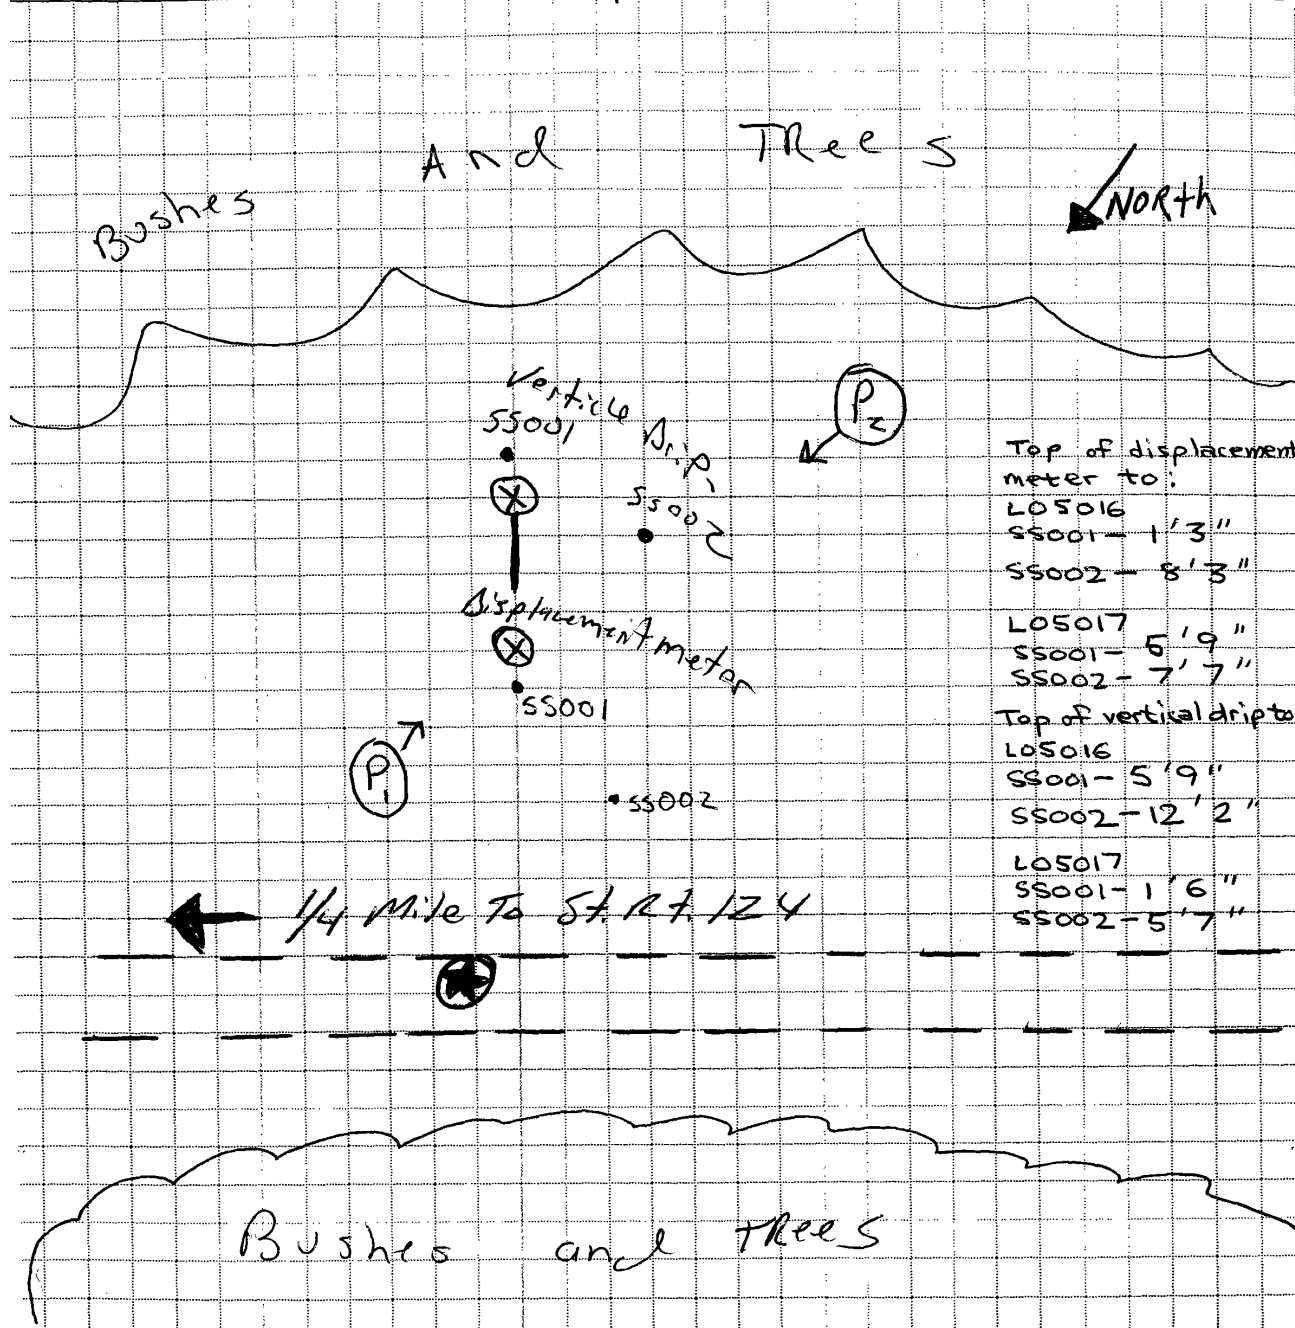 Bushes And TRees
NORth
Verticle Drip
SS001
SS002
P2
Displacement meter
SS001
P1
SS002
Top of displacement
meter to:
LO5016
SS001- 1'3"
SS002- 8'3"
LO5017
SS001- 5'9"
SS002- 7'7"
Top of vertical drip to
LO5016
SS001- 5'9"
SS002-12'2"
LO5017
SS001- 1'6"
SS002-5'7"
1/4 Mile To St. Rt. 124
Bushes and tRees